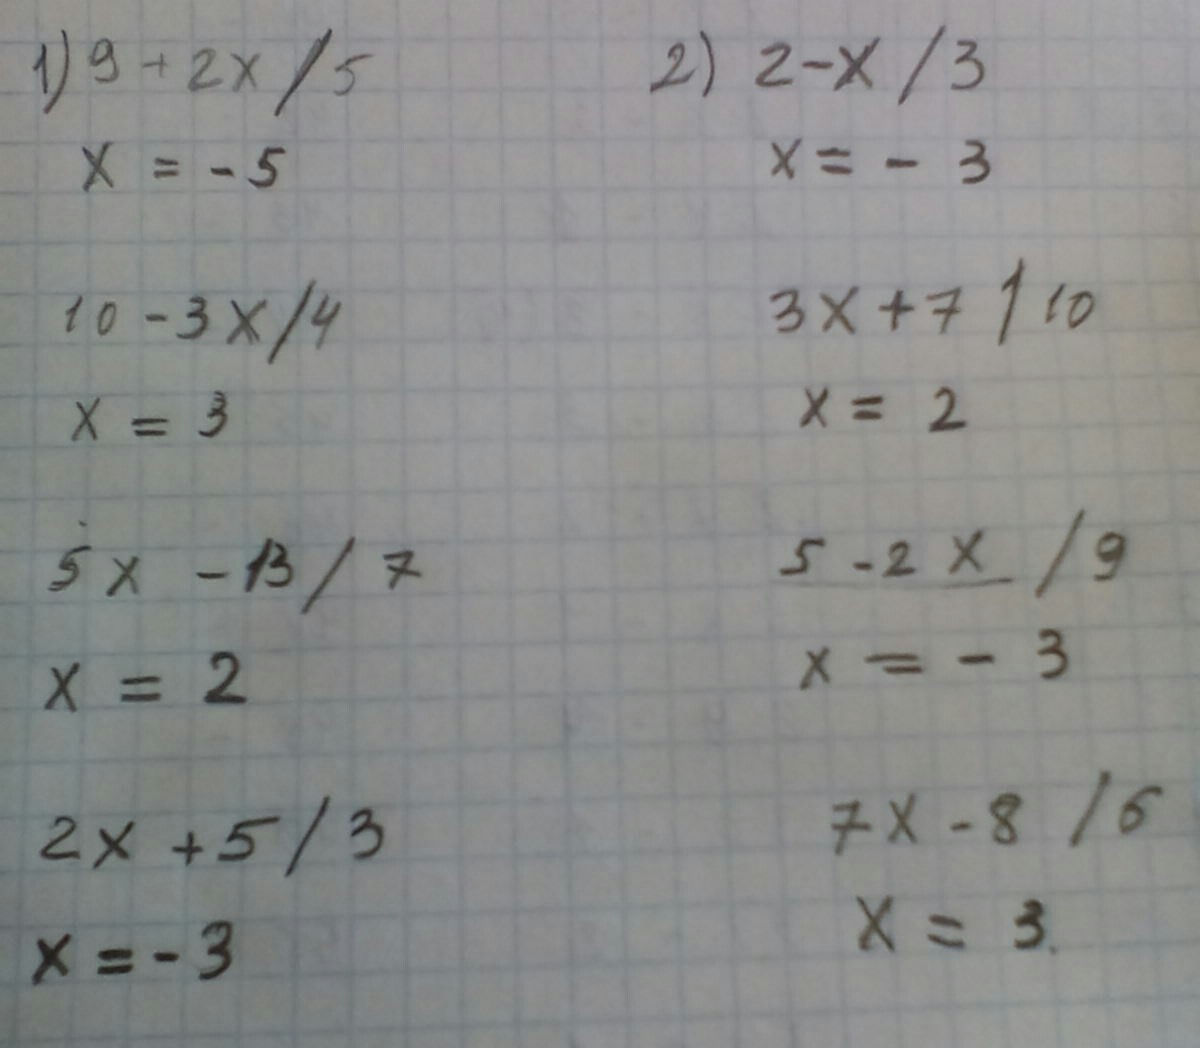 1) 9 + 2x / 5
x = -5
10 - 3x / 4
x = 3
5x - 13 / 7
x = 2
2x + 5 / 3
x = -3
2) 2 - x / 3
x = - 3
3x + 7 / 10
x = 2
5 - 2x / 9
x = - 3
7x - 8 / 6
x = 3.